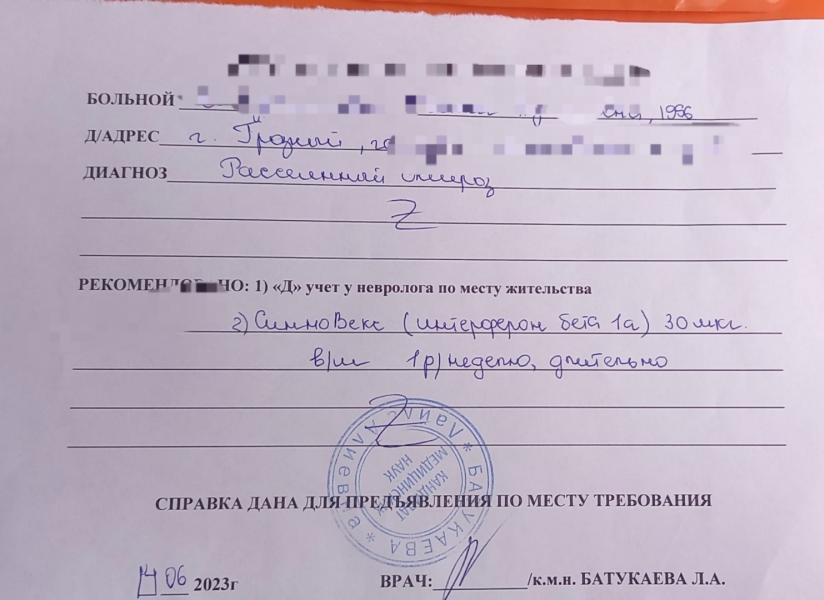 БОЛЬНОЙ 1996
Д/АДРЕС г. Грозный,
ДИАГНОЗ Рассеянный склероз
Z
РЕКОМЕНДОВАНО: 1) «Д» учет у невролога по месту жительства
2) СинноВекс (интерферон бета 1а) 30 мкг.
в/м 1р/неделю, длительно
Z
* БАТУКАЕВА * Лайла Алиевна
КАНДИДАТ МЕДИЦИНСКИХ НАУК
СПРАВКА ДАНА ДЛЯ ПРЕДЪЯВЛЕНИЯ ПО МЕСТУ ТРЕБОВАНИЯ
14 06 2023г ВРАЧ: /к.м.н. БАТУКАЕВА Л.А.